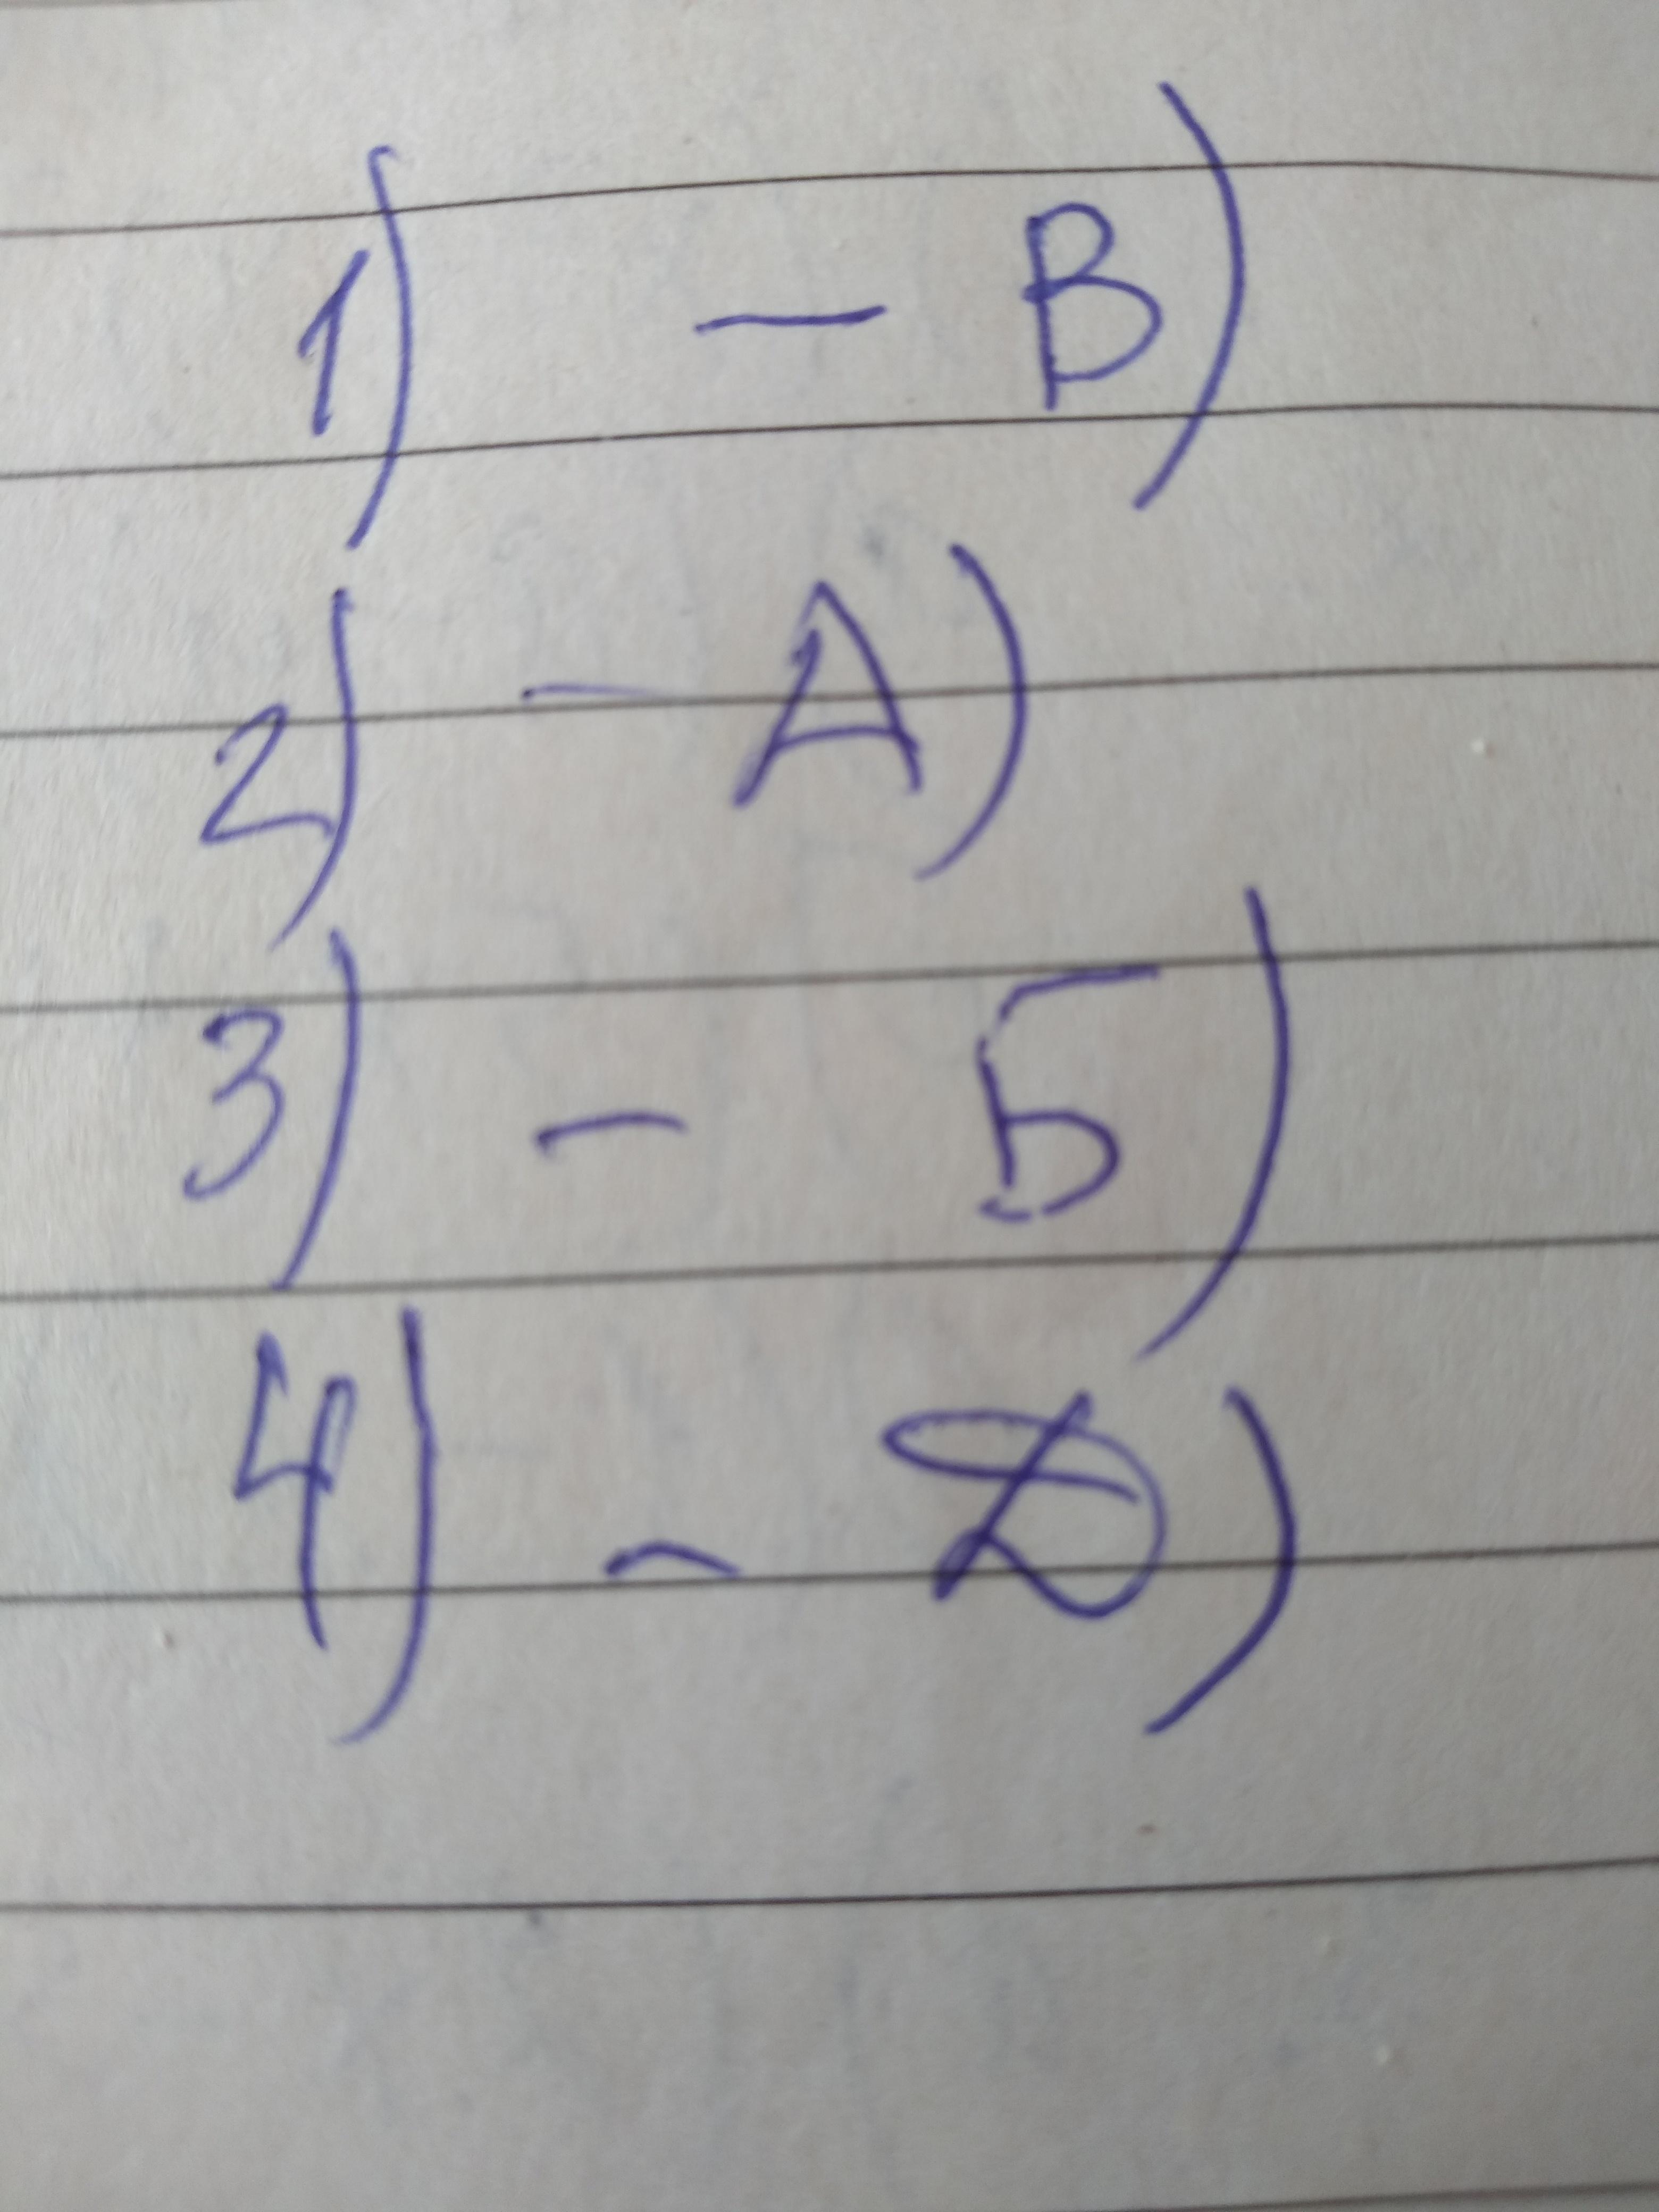 1) - В)
2) - А)
3) - Б)
4) - Д)